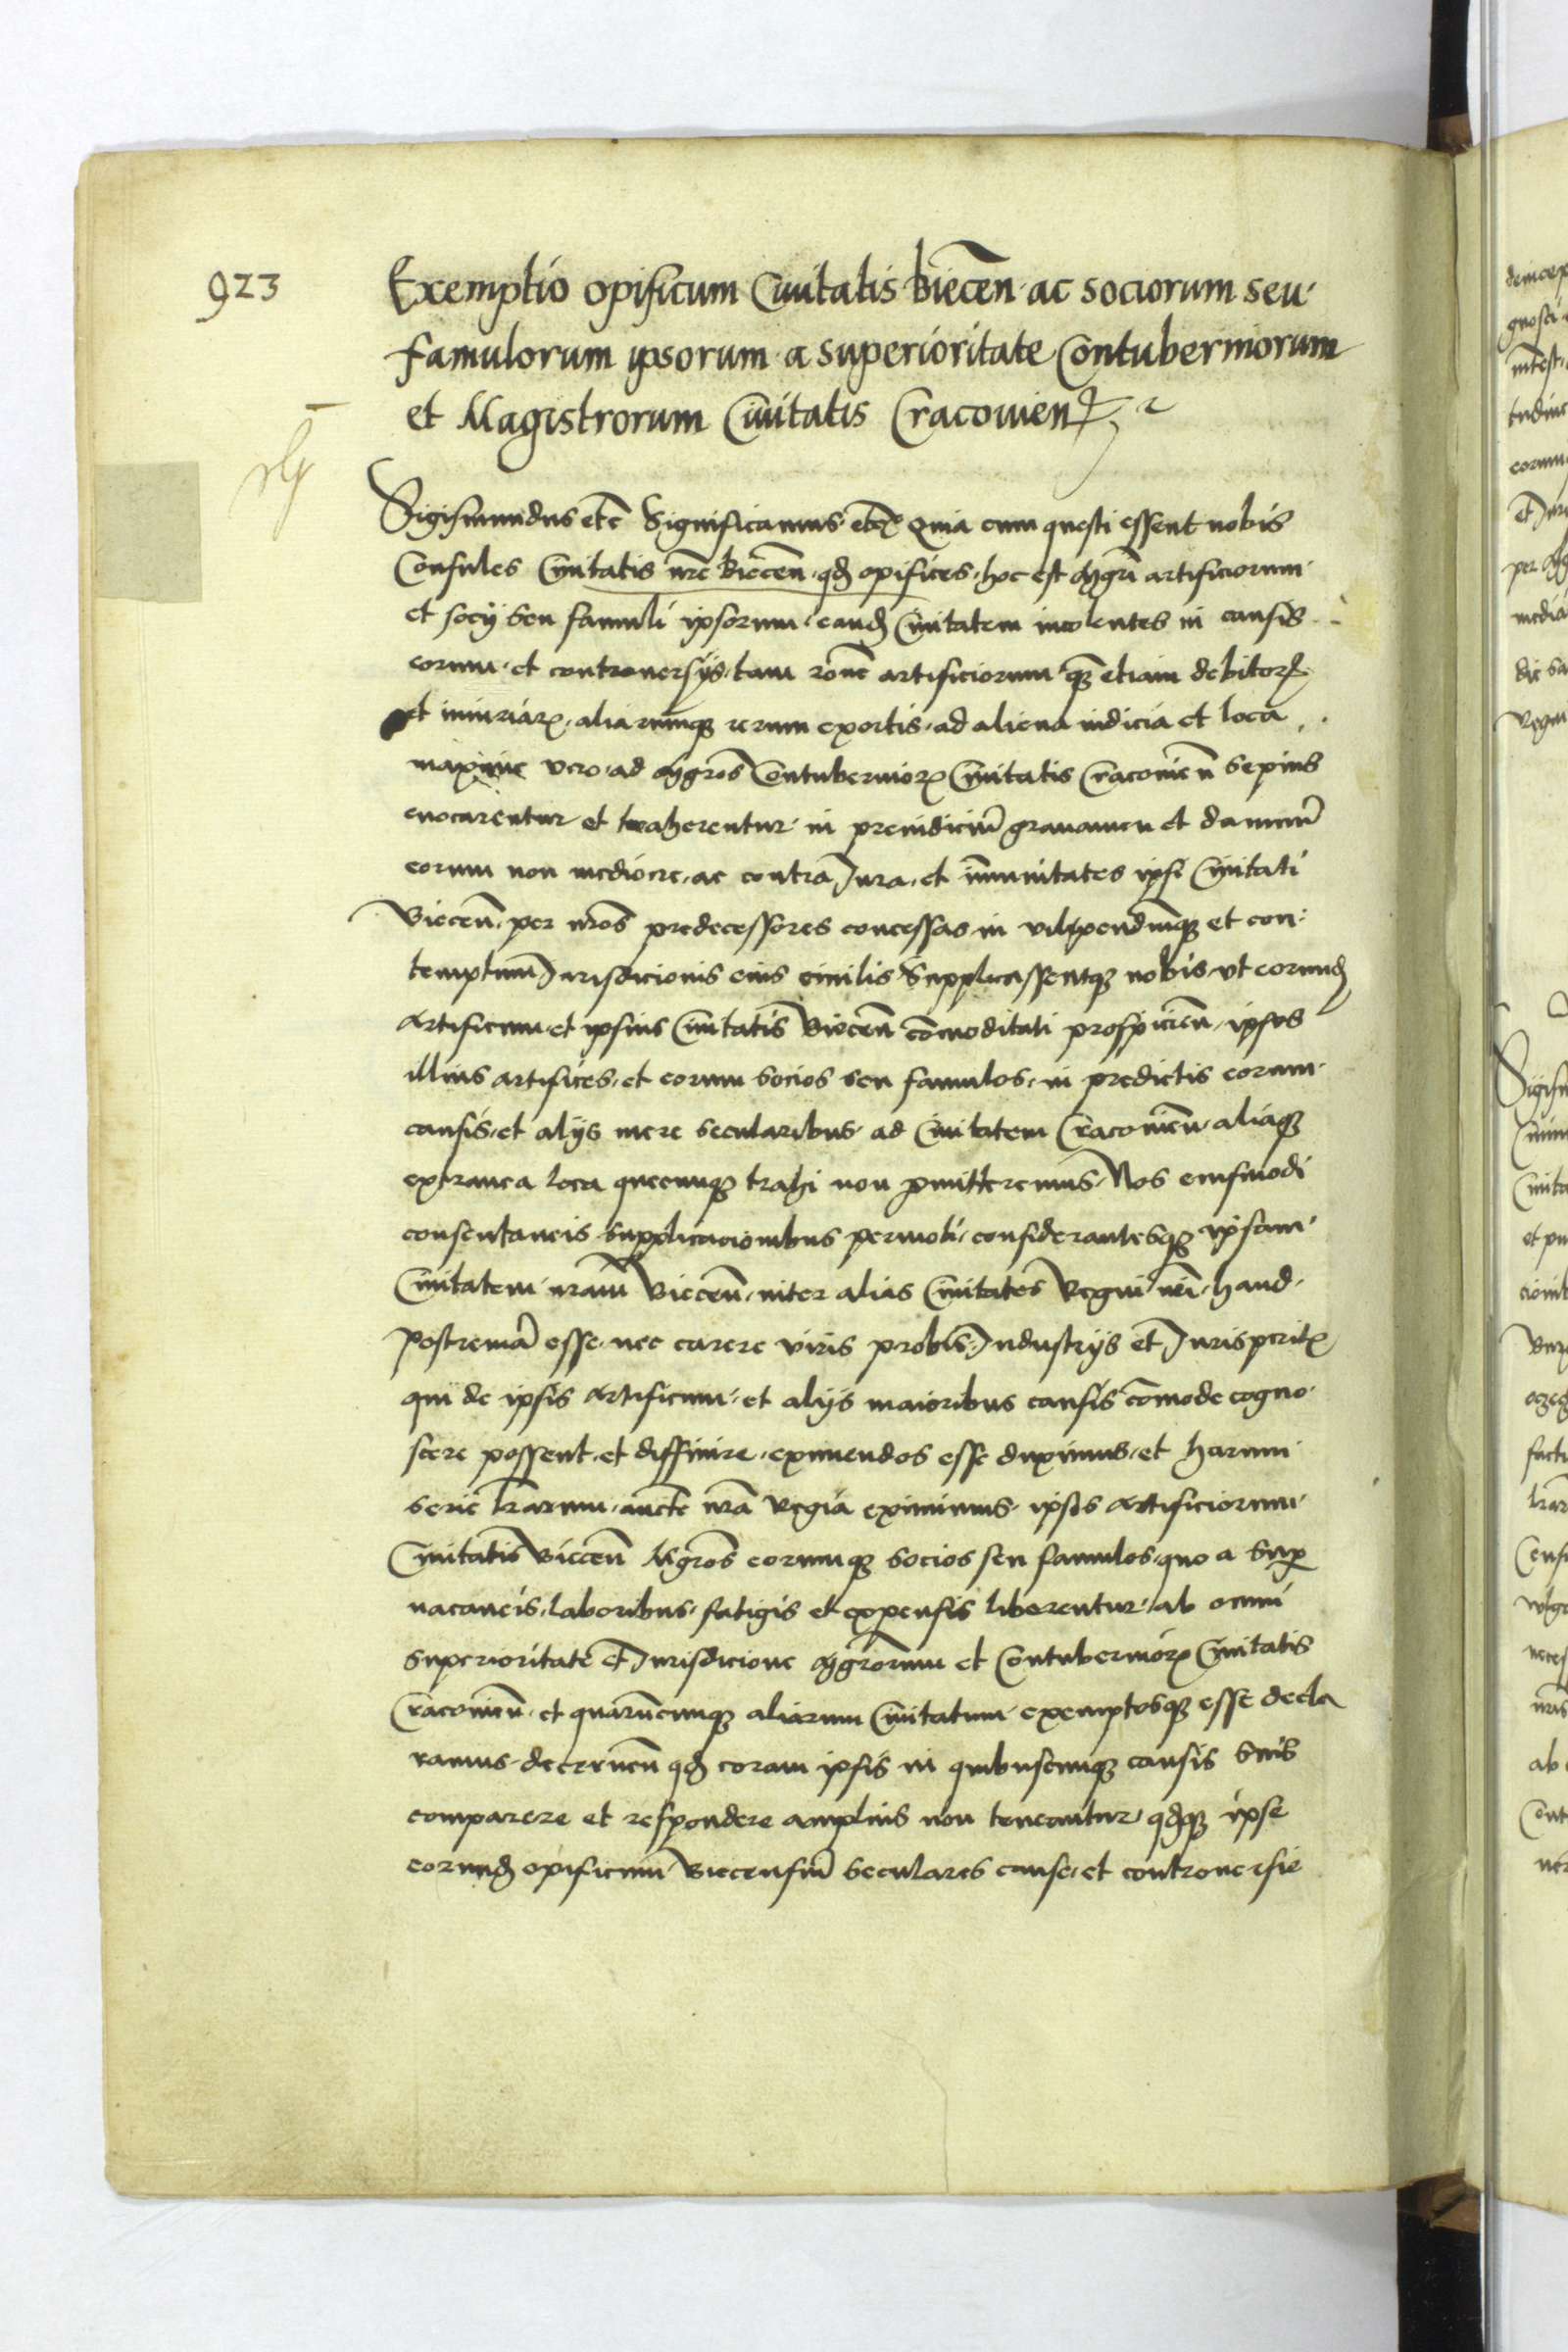 923
Exemptio opificum Civitatis biecen̄ ac sociorum seu
famulorum ipsorum a superioritate Contuberniorum
et Magistrorum Civitatis Cracovien̄
Sigismundus etc̄ Significamus etc̄ Quia cum questi essent nobis
Consules Civitatis nr̄e biecen̄ qđ opifices hoc est Mgr̄i artificiorum
et socij seu famuli ipsorum eanđ Civitatem incolentes in causis
eorum et controversijs tam rōne artificiorum qȝ etiam debitorꝝ
et iniuriarꝝ aliarumqȝ rerum exortis ad aliena iudicia et loca
maxime vero ad Mgr̄os Contuberniorꝝ Civitatis Cracovien̄ sepius
evocarentur et traherentur in preiudiciū gravamen et damnū
eorum non mediocre ac contra Jura et im̄unitates ipsi Civitati
Biecen̄ per nr̄os predecessores concessas in vilipendiumqȝ et con
temptum Jurisdicionis eius civilis Supplicassentqȝ nobis vt eorunđ
Artificum et ipsius Civitatis Biecen̄ com̄oditati prospicien̄ ipsos
illius artifices et eorum socios seu famulos in predictis eorum
causis et alijs mere secularibus ad Civitatem Cracovien̄ aliaqȝ
extranea loca quecunqȝ trahi non ꝑmitteremus Nos eiusmodi
consentaneis supplicacionibus permoti considerantesqȝ ipsam
Civitatem nr̄am Biecen̄ inter alias Civitates Regni nr̄i haud
postremā esse nec carere viris probis Industrijs et Jurisperitꝭ
qui de ipsis Artificum et alijs maioribus causis com̄ode cogno
scere possent et diffinire eximendos esse duximus et harum
serie lr̄arum auctē nr̄a Regia eximimus ipsos Artificiorum
Civitatis Biecen̄ Mgr̄os eorumqȝ socios seu famulos quo a Suꝑ
vacaneis laboribus fatigis et expensis liberentur ab omni
superioritate et Jurisdicione Mgr̄orum et Contuberniorꝝ Civitatis
Cracovien̄ et quarūcumqȝ aliarum Civitatum exemptosqȝ esse decla
ramus decernen̄ qđ coram ipsis in quibuscumqȝ causis suis
comparere et respondere amplius non teneantur qđqȝ ipse
eorunđ opificum Biecensiū seculares cause et controversie